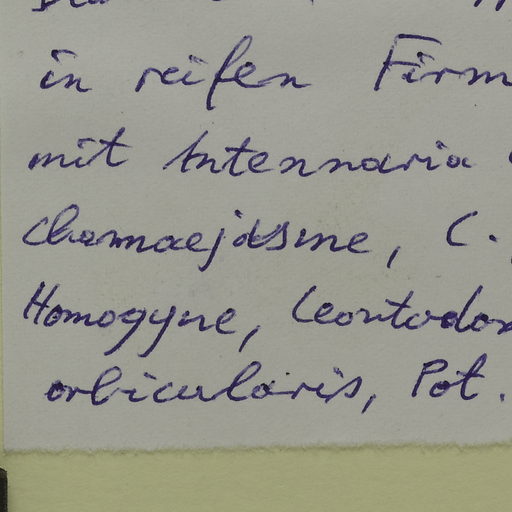 in reifen Firm
mit Antennaria
chamaejasme, C.
Homogyne, Leontodon
orbicularis, Pot.